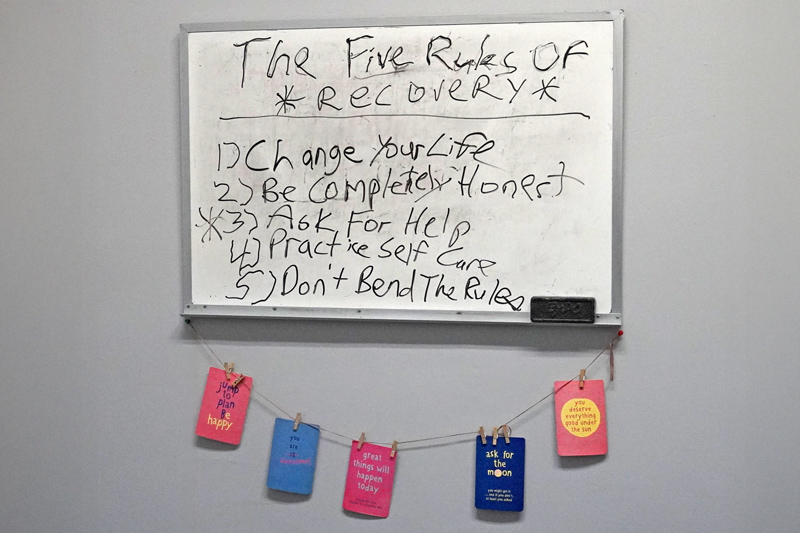 The Five Rules OF
* RECOVERY *
1) Change Your Life
2) Be Completely Honest
* 3) Ask For Help
4) Practice Self Care
5) Don't Bend The Rules
jump
to
plan
Be
happy
you
are
great
things will
happen
today
ask for
the
moon
you might get it
you
deserve
everything
good under
the sun